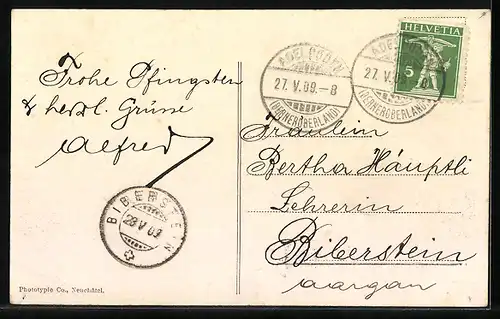 Frohe Pfingsten
& herzl. Grüsse
Alfred
BIBERSTEIN
28 V 09
Phototypie Co., Neuchâtel.
ADELBODEN
27. V. 09.-8
(BERNEROBERLAND)
ADELBODEN
27. V. 09.-8
(BERNEROBERLAND)
HELVETIA
5
Fräulein
Bertha Häuptli
Lehrerin
Biberstein
Aargau